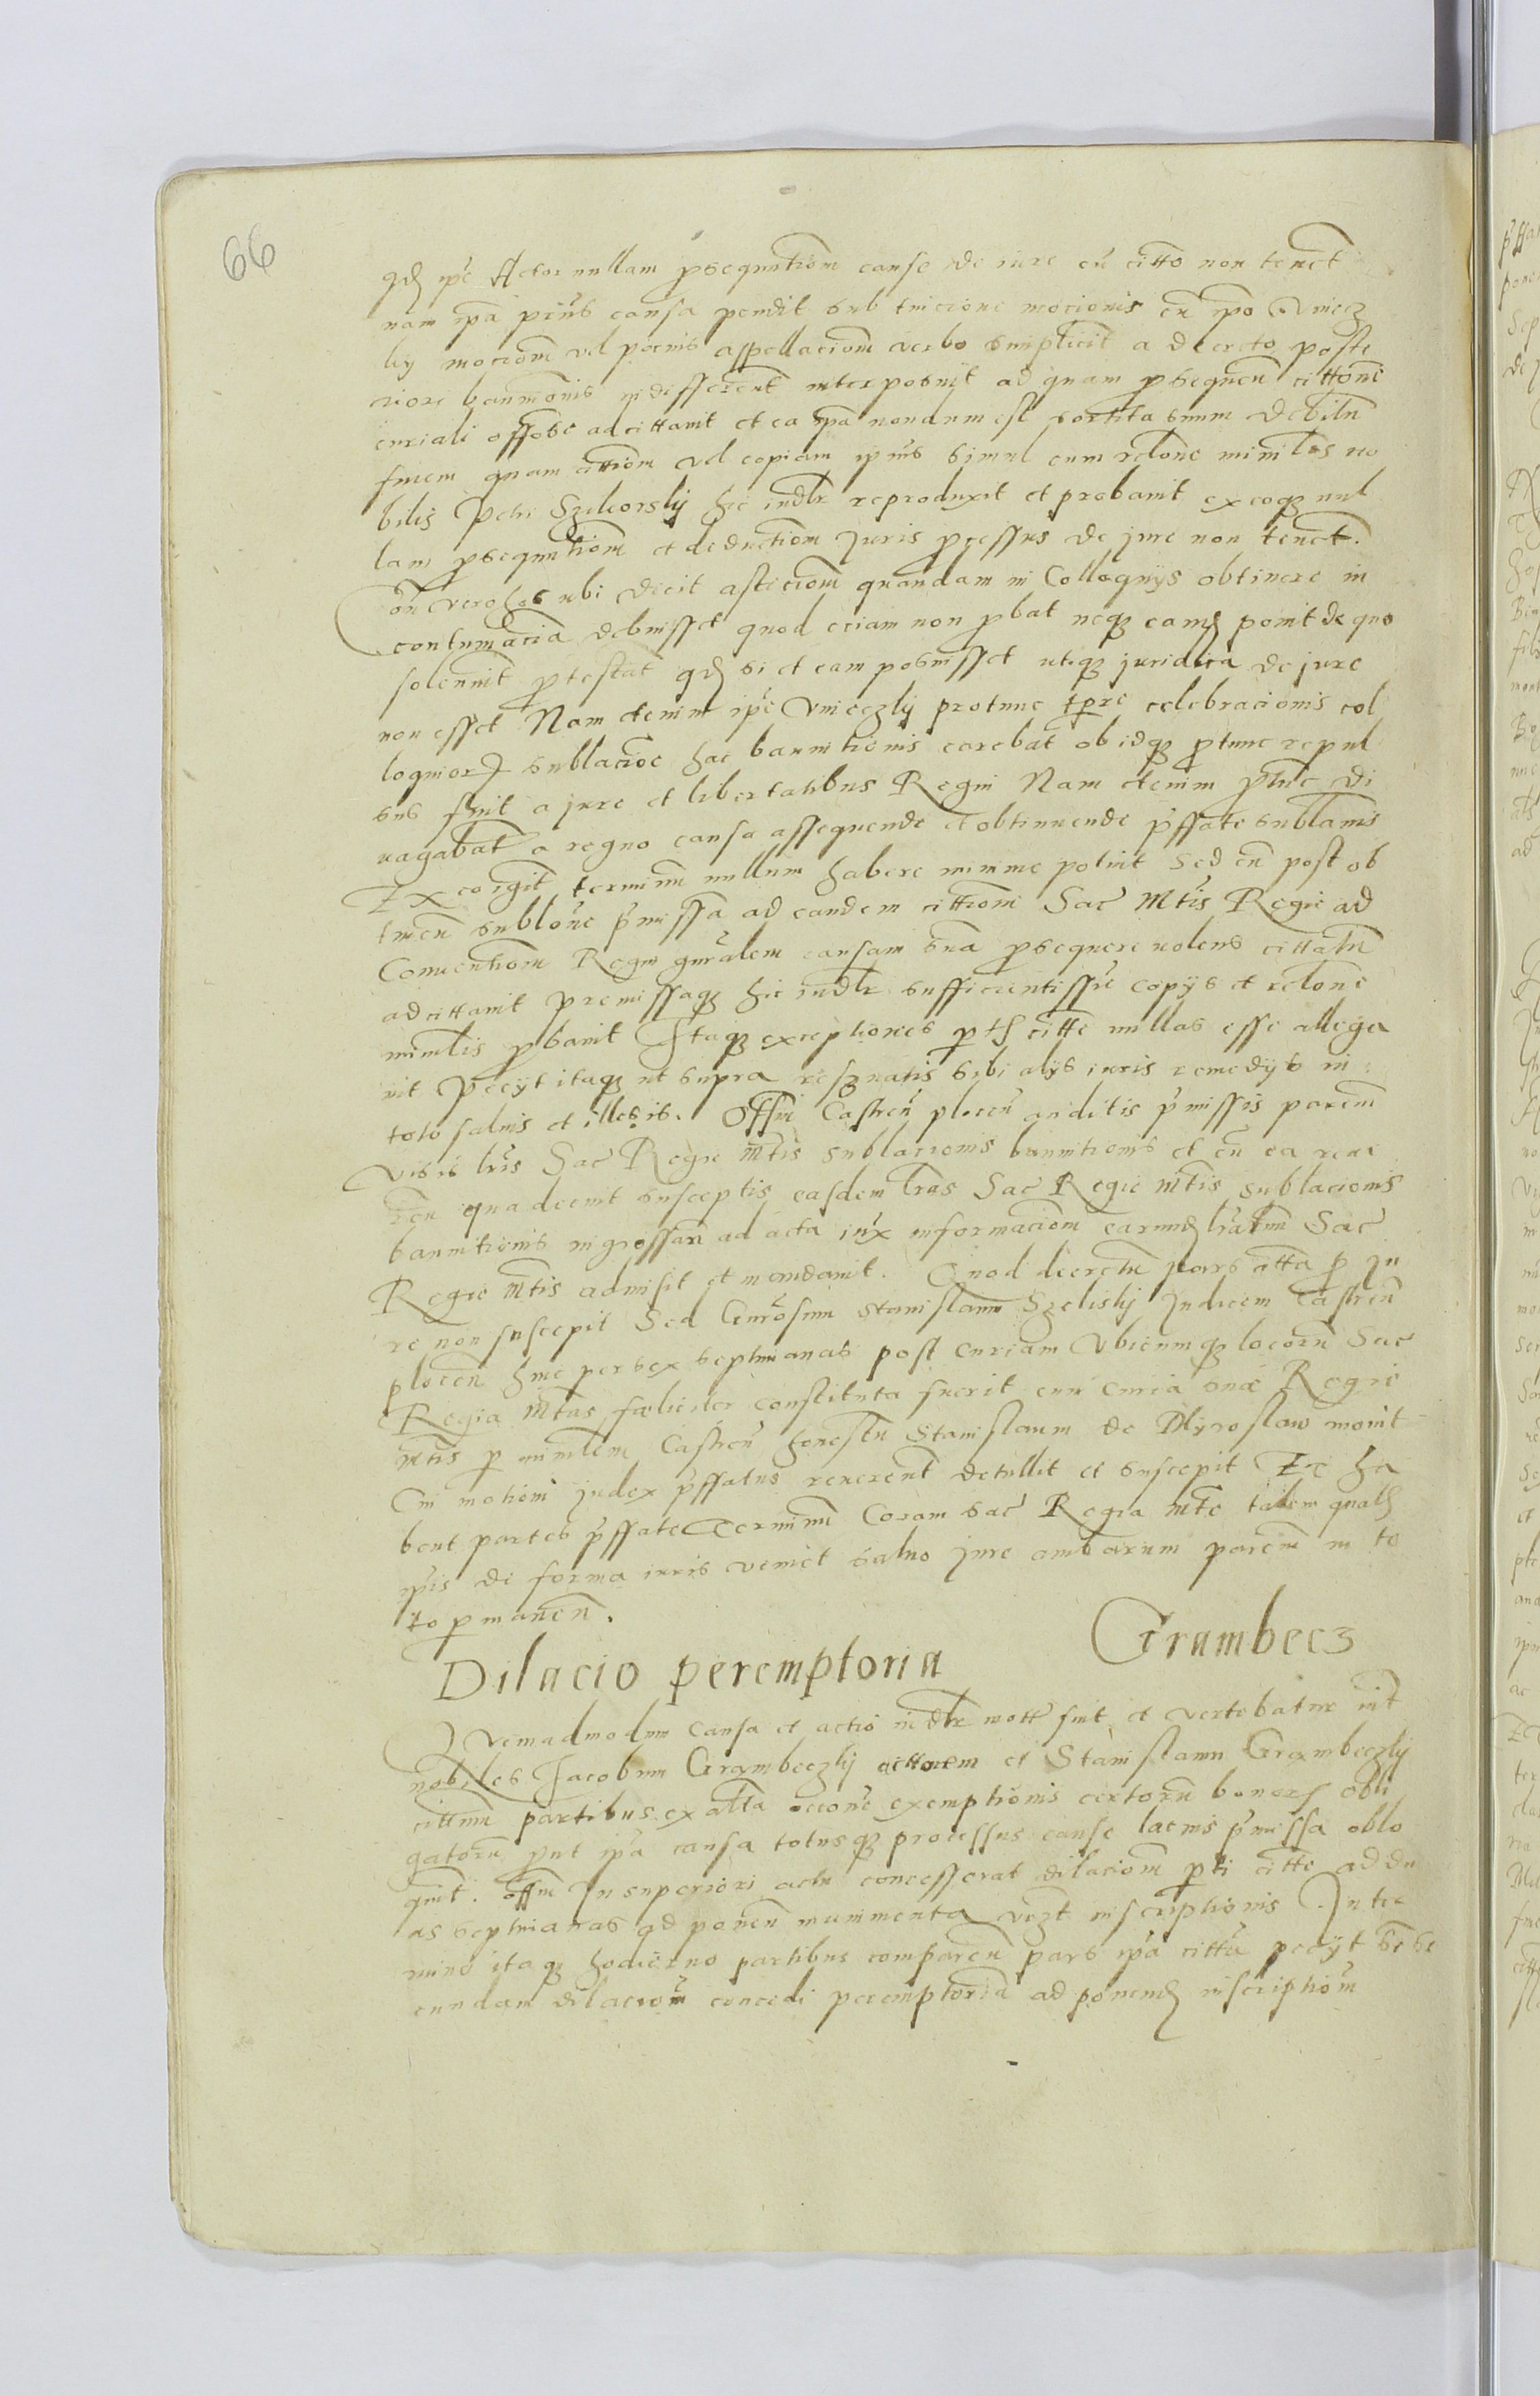 66
qd ipe Actor nullam prosequutiom cause de iure cu citto non tenet
nam ipa prius causa pendit sub tuicione mocionis cu ipo Uniecz
ky mociom vel potius appellaciom verbo simplicit a decreto poste
riore bannionis indifferent interposuit ad quam prosequen cittone
curiali adcittavit et ea ipa nondum est sortita suum debitu
finem quam cittiom vel copiam ipius simul cum relone minilis no
bilis Petri Szikorsky hic iudlr reproduxit et probavit ex eoqz nul
lam prosequutiom et deductiom juris processus de jure non tenet.
vero ubi dicit acticiom quandam in Colloquijs obtinere in
contumacia debuisset quod eciam non probat neqz eamd ponit de quo
solennit protestat qd si et eam posuisset utiqz juridica de jure
non esset Nam etenim ipe Unieczky protunc tpre celebracionis col
loquior sublacioe hac bannitionis carebat ob idqz ptunc repul
sus fuit a jure et libertatibus Regni Nam etenim ptunc di
vagabat a regno causa assequende et obtinende pffate sublanis
Ex eo igit terminu nullum habere minime potuit Sed cu post ob
tineu sublone pmissa ad eandem cittiom Sac Mtis Regie ad
Conventiom Regni gnralem causam sua prosequere volens cittatu
adcittavit premissaqz hic iudlr sufficientissie copijs et relone
minilis pbavit Itaqz exceptiones pts citte nullas esse allega
vit Pecijt itaqz ut supra resignatis sibi alijs iuris remedijs in
toto salvis et illesis. Offm Castren plocen auditis pmissis parcim
visis lris Sac Regie Mtis sublacionis bannitionis et cu ea reve
ren qua decuit susceptis easdem lras Sac Regie Mtis sublacionis
bannitionis ingrossari ad acta iux informaciom earumd lratum Sac
Regie Mtis admisit et mandavit. Quod decretu pars citta p Ju
re non suscepit Sed Gnrosum Stanislaum Szeliskij Judicem Castren
plocen hinc per sex septimanas post curiam Ubicumqz locoru Sac
Regia Mtas fæliciter constituta fuerit cum curia sua Regie
Mtis p minilem Castren honestu Stanislaum de Myroslaw movit
Cui motiom judex pffatus reverent detullit et suscepit Et ha
bent partes pffate Terminu Coram Sac Regia Mte talem quals
ipis de forma iuris veniet salvo jure ambarum parcium in to
to pmanen.
Dilacio peremptoria Grambecz
Quemadmodum Causa et actio iudlr mott fuit et vertebatur int
nobiles Jacobum Grambeczky actorem et Stanislaum Grambeczky
cittum partibus ex alta occone exemptionis certoru bonors obli
gatoru put ipa causa totusqz processus cause lacius pmissa oblo
quit. Offm In superiori actu concesserat dilaciom pti citte ad du
as septimanas ad ponen munimenta inscriptionis In ter
mino itaqz hodierno partibus comparen pars ipa citta pecijt
cundam dilaciom concedi peremptoria ad ponend inscriptiom